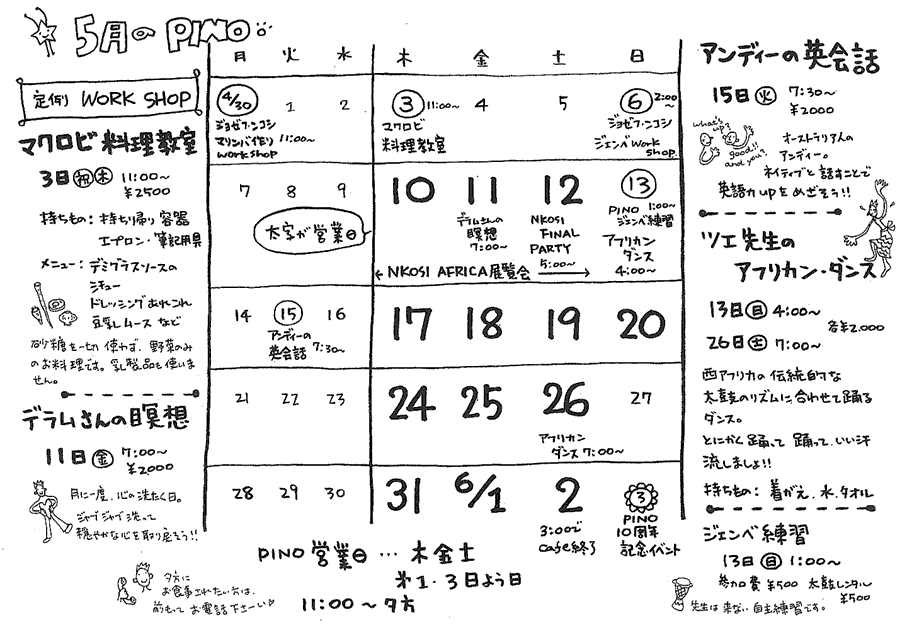 5月の PINO
定例 WORK SHOP
マクロビ 料理教室
3日 祝 木 11:00〜
¥2500
持ちもの：持ち帰り容器
エプロン・筆記用具
メニュー：デミグラスソースの
シチュー
ドレッシングあれこれ
豆乳ムース など
砂糖を一切使わず、野菜のみ
のお料理です。乳製品も使いま
せん。
デラムさんの瞑想
11日 金 7:00〜
¥2000
月に一度、心の洗たく日。
ジャブジャブ洗って
穏やかな心を取り戻そう!!
月 火 水 木 金 土 日
4/30 1 2 3 11:00〜 4 5 6 2:00〜
ジョゼフ・ンコシ
マリンバ作り 11:00〜
work shop
マクロビ
料理教室
ジョゼフ・ンコシ
ジェンベ Work
Shop
7 8 9 10 11 12 13
太字が営業日
デラムさんの
瞑想
7:00〜
NKOSI
FINAL
PARTY
5:00〜
PINO 1:00〜
ジェンベ練習
アフリカン
ダンス
4:00〜
NKOSI AFRICA展覧会
14 15 16 17 18 19 20
アンディーの
英会話 7:30〜
21 22 23 24 25 26 27
アフリカン
ダンス 7:00〜
28 29 30 31 6/1 2 3
3:00で
Cafe終了
PINO
10周年
記念イベント
PINO 営業日 … 木金土
第1・3日よう日
11:00〜夕方
夕方に
お食事されたい方は、
前もって お電話下さーい♡
アンディーの英会話
15日 火 7:30〜
¥2000
what's
up?
good!!
and you?
オーストラリア人の
アンディー。
ネイティブと話すことで
英語力upをめざそう!!
ツェ先生の
アフリカン・ダンス
13日 日 4:00〜
各¥2.000
26日 土 7:00〜
西アフリカの伝統的な
太鼓のリズムに合わせて踊る
ダンス。
とにかく踊って 踊って、いい汗
流しましょ!!
持ちもの：着がえ、水、タオル
ジェンベ練習
13日 日 1:00〜
参加費 ¥500 太鼓レンタル
¥500
先生は来ない自主練習です。